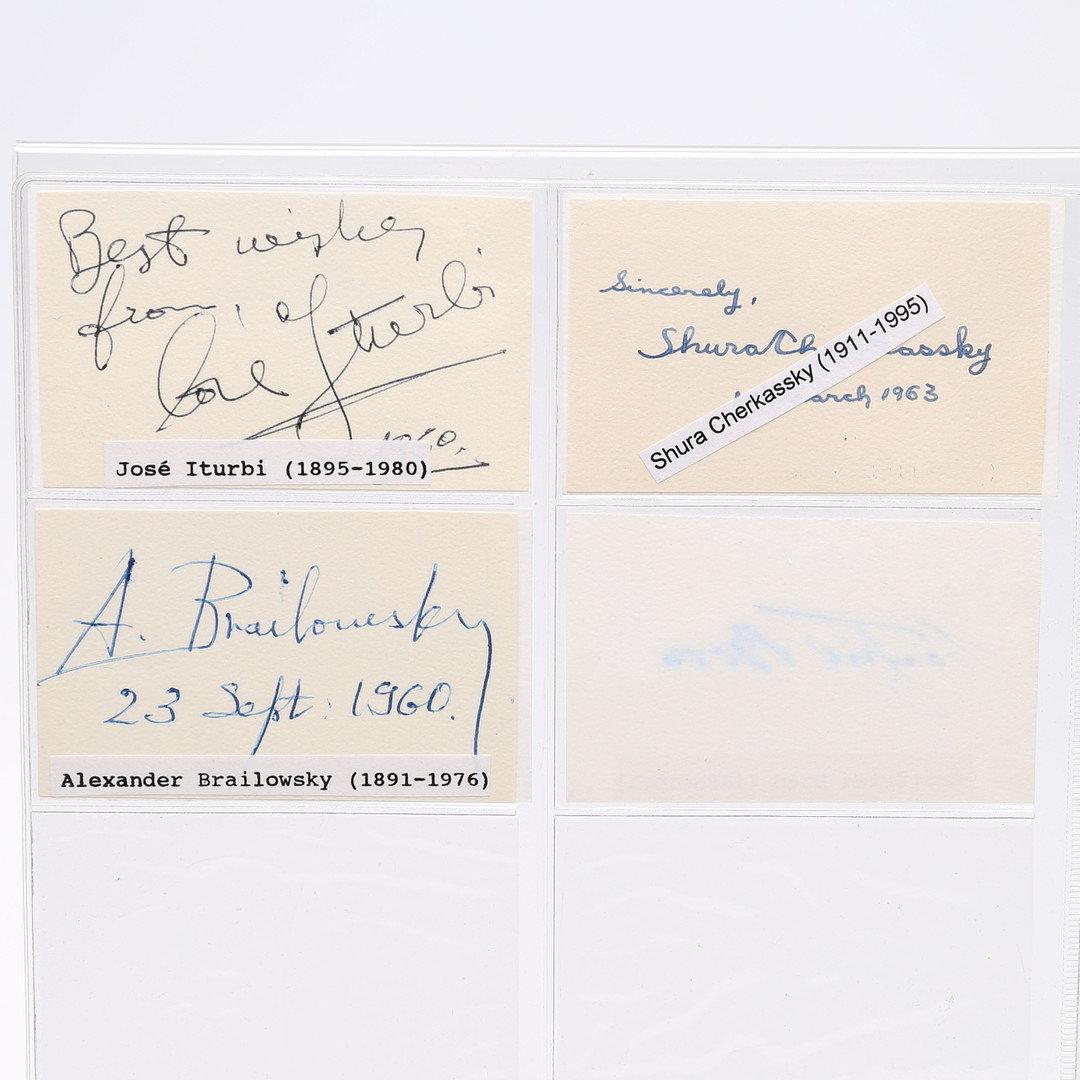 Best wishes
from, of
José Iturbi
José Iturbi (1895-1980)
Sincerely,
Shura Cherkassky
March 1963
Shura Cherkassky (1911-1995)
A. Brailowsky
23 Sept: 1960.
Alexander Brailowsky (1891-1976)